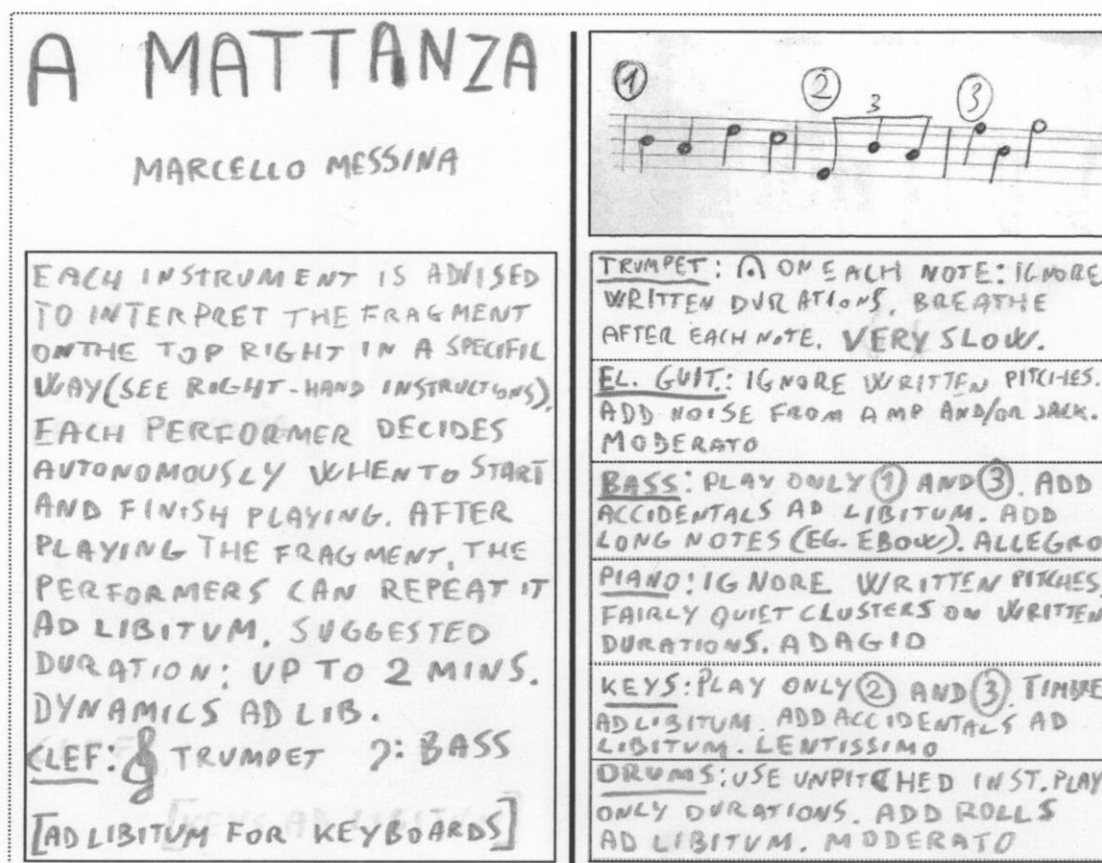 A MATTANZA
MARCELLO MESSINA
EACH INSTRUMENT IS ADVISED
TO INTERPRET THE FRAGMENT
ON THE TOP RIGHT IN A SPECIFIC
WAY (SEE RIGHT-HAND INSTRUCTIONS).
EACH PERFORMER DECIDES
AUTONOMOUSLY WHEN TO START
AND FINISH PLAYING. AFTER
PLAYING THE FRAGMENT, THE
PERFORMERS CAN REPEAT IT
AD LIBITUM. SUGGESTED
DURATION: UP TO 2 MINS.
DYNAMICS AD LIB.
CLEF: 𝄞 TRUMPET 𝄢 BASS
[AD LIBITUM FOR KEYBOARDS]
① ② 3 ③
TRUMPET: 𝄐 ON EACH NOTE: IGNORE
WRITTEN DURATIONS. BREATHE
AFTER EACH NOTE. VERY SLOW.
EL. GUIT.: IGNORE WRITTEN PITCHES.
ADD NOISE FROM AMP AND/OR JACK.
MODERATO
BASS: PLAY ONLY ① AND ③. ADD
ACCIDENTALS AD LIBITUM. ADD
LONG NOTES (EG. EBOW). ALLEGRO
PIANO: IGNORE WRITTEN PITCHES,
FAIRLY QUIET CLUSTERS ON WRITTEN
DURATIONS. ADAGIO
KEYS: PLAY ONLY ② AND ③. TIMBRE
AD LIBITUM. ADD ACCIDENTALS AD
LIBITUM. LENTISSIMO
DRUMS: USE UNPITCHED INST. PLAY
ONLY DURATIONS. ADD ROLLS
AD LIBITUM. MODERATO